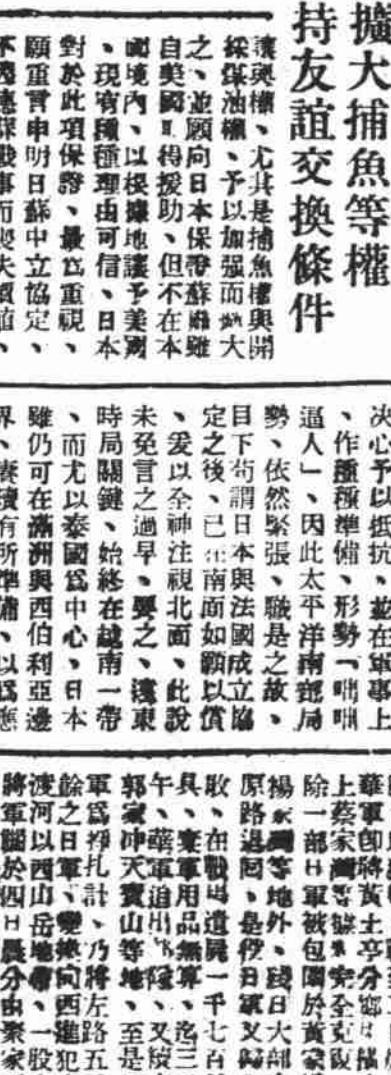 擴大捕魚等權
持友誼交換條件
讓與權、尤其是捕魚權與開
採煤油權、予以加强而擴大
之、並願向日本保證蘇聯雖
自美國獲得援助、但不在本
國境內、以根據地讓予美國
、現有種種理由可信、日本
對於此項保證、最爲重視、
願重言申明日蘇中立協定、
不因德蘇戰事而喪失價值、
决心予以抵抗、故在軍事上
、作種種準備、形勢「咄咄
逼人」、因此太平洋南部局
勢、依然緊張、職是之故、
目下苟謂日本與法國成立協
定之後、已在南面如願以償
、爰以全神注視北面、此說
未免言之過早、要之、遠東
時局關鍵、始終在越南一帶
、而尤以泰國爲中心、日本
雖仍可在滿洲與西伯利亞邊
界、賡續有所準備、以爲應
華軍卽將黃土亭分鄉
上蔡家灣等據點完全克復
除一部日軍被包圍於黃家
楊家灣等地外、殘日大部
原路退囘、是役日軍又
敗、在戰場遺屍一千七百
具、棄軍用品無算、迄三
午、華軍追出、又
郭家冲天寶山等地、至是
軍爲掙扎計、乃將左路五
餘之日軍、變換向西進犯
渡河以西山岳地帶、一股
將軍關於四日晨分由聚家